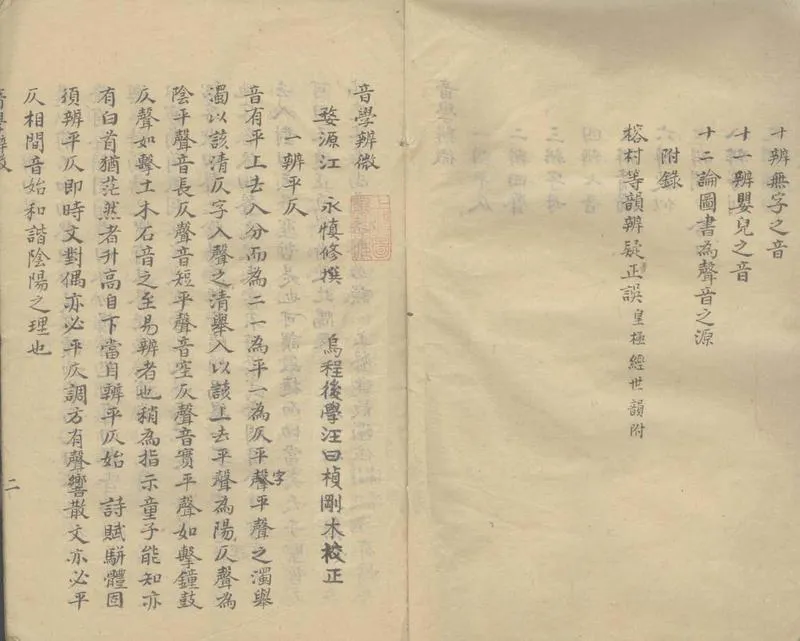 十辨無字之音
十一辨嬰兒之音
十二論圖書為聲音之源
附錄
榕村等韻辨疑正誤皇極經世韻附
音學辨微
婺源江永慎修撰 烏程後學汪曰楨剛木校正
一辨平仄
音有平上去入分而為二一為平一為仄平聲字平聲之濁舉
濁以該清仄字入聲之清舉入以該上去平聲為陽仄聲為
陰平聲音長仄聲音短平聲音空仄聲音實平聲如擊鐘鼓
仄聲如擊土木石音之至易辨者也稍為指示童子能知亦
有白首猶茫然者升高自下當自辨平仄始 詩賦駢體固
須辨平仄即時文對偶亦必平仄調方有聲響散文亦必平
仄相間音始和諧陰陽之理也
二